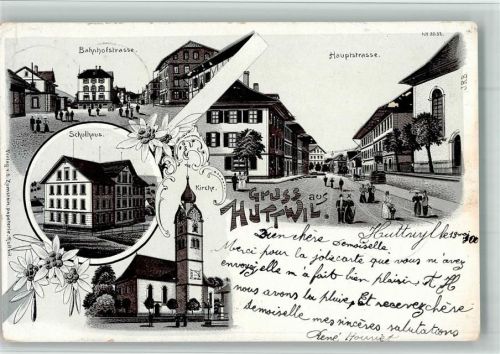 No 2033.
Bahnhofstrasse.
Hauptstrasse.
JRB
Schulhaus.
Kirche.
GRUSS aus
HUTTWIL.
Huttwyl
Bien chère
Demoiselle
Merci pour la jolie carte que vous m'avez
envoyé, elle m'a fait bien plaisir. A H
nous avons eu pluie, Et recevez chère
Demoiselle mes sincères salutations
René